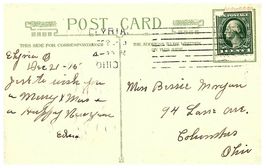 POST CARD
THIS SIDE FOR CORRESPONDENCE
THE ADDRESS
ELYRIA
OHIO
Elyria O
Dec 21-15
Just to wish you
a Merry X-Mas &
a Happy New year
Edna
Miss Bessie Morgan
94 Lane ave.
Columbus
Ohio